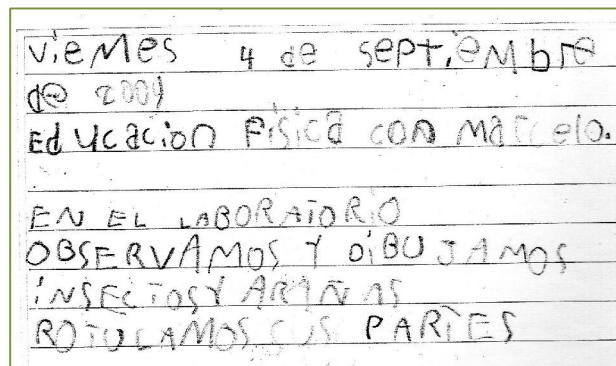 viernes 4 de septiembre
de 2009
Educacion Fisica con Marcelo.
EN EL LABORATORIO
OBSERVAMOS Y DIBUJAMOS
INSECTOS Y ARAÑAS
ROTULAMOS SUS PARTES